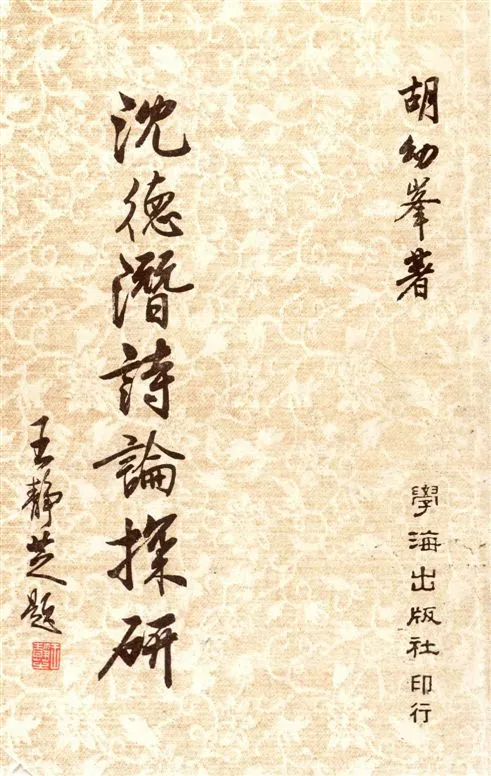 胡幼峯著
沈德潛詩論探研
王靜芝題
學海出版社印行